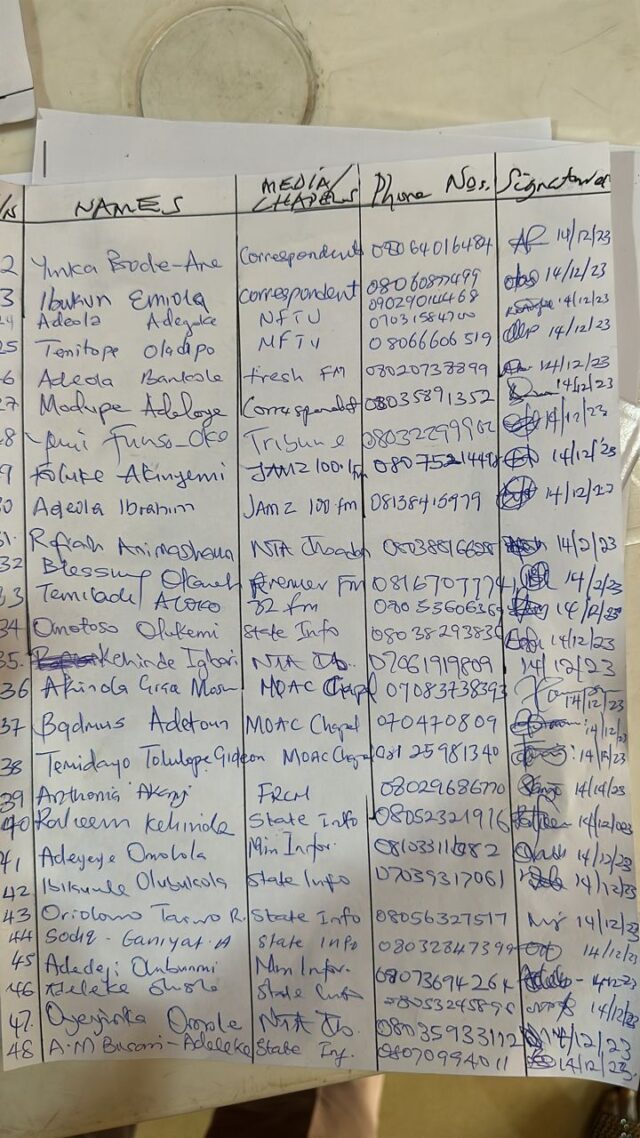 /N NAMES MEDIA/CHAPELS Phone Nos. Signatures
2 Yinka Bode-Are Correspondent 08064016484 14/12/23
3 Ibukun Emiola correspondent 08060877499 14/12/23
09029014468
24 Adeola Adegoke NFTU 07031584700 14/12/23
25 Temitope Oladipo MFTV 08066606519 14/12/23
6 Adeola Bankole fresh FM 08020737899 14/12/23
27 Modupe Adeloye Correspondent 08035891352 14/12/23
8 Yemi Funso-Oke Tribune 08032299902 14/12/23
9 Foluke Akinyemi JAMZ 100.1fm 14/12/23
30 Adeola Ibrahim JAMZ 100 fm 08138415979 14/12/23
31. Rafiah Animashaun NTA Ibadan 14/2/23
32 Blessing Premier Fm 14/2/23
33 Temilade 32 fm 14/12/23
34 Omotoso Olukemi State Info 14/12/23
35. Kehinde Igbari NTA Ib. 07061919809 14/12/23
36 Akinola MOAC Chapel 07083738393 14/12/23
37 Badmus Adetoun MOAC Chapel 070470809 14/12/23
38 Temidayo Tolulope Gideon MOAC Chapel 25981340 14/12/23
39 Anthonia FRCN 08029686770
40 Raheem Kehinde State Info 08052321976
41 Adeyeye Omolola Min Infor. 14/12/23
42 Olubukola State Info 07039317061 14/12/23
43 Oriolowo Taiwo R. State Info 08056327517 14/12/23
44 Sodiq-Ganiyat.A State Info 08032847399 14/12/23
45 Adedeji Min Infor. 0807369426
46 Adeleke State Info 14/12/23
47. Oyeyinka Omole NTA Ib. 08035933112 14/12/23
48 A.M Busari-Adeleke State Inf. 0807099401 14/12/23